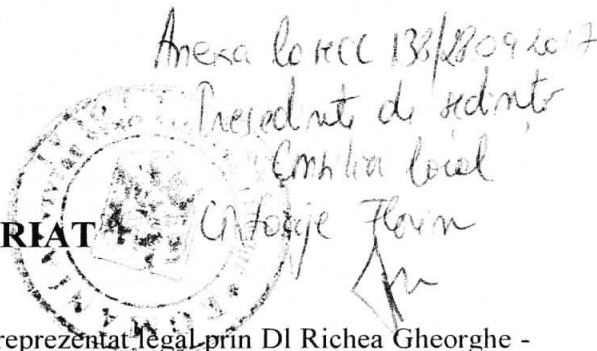 Anexa la HCC 138/28.09.2017
Presedinte de sedinta
Consilier local
Florin
RIAT
reprezentat legal prin Dl Richea Gheorghe -